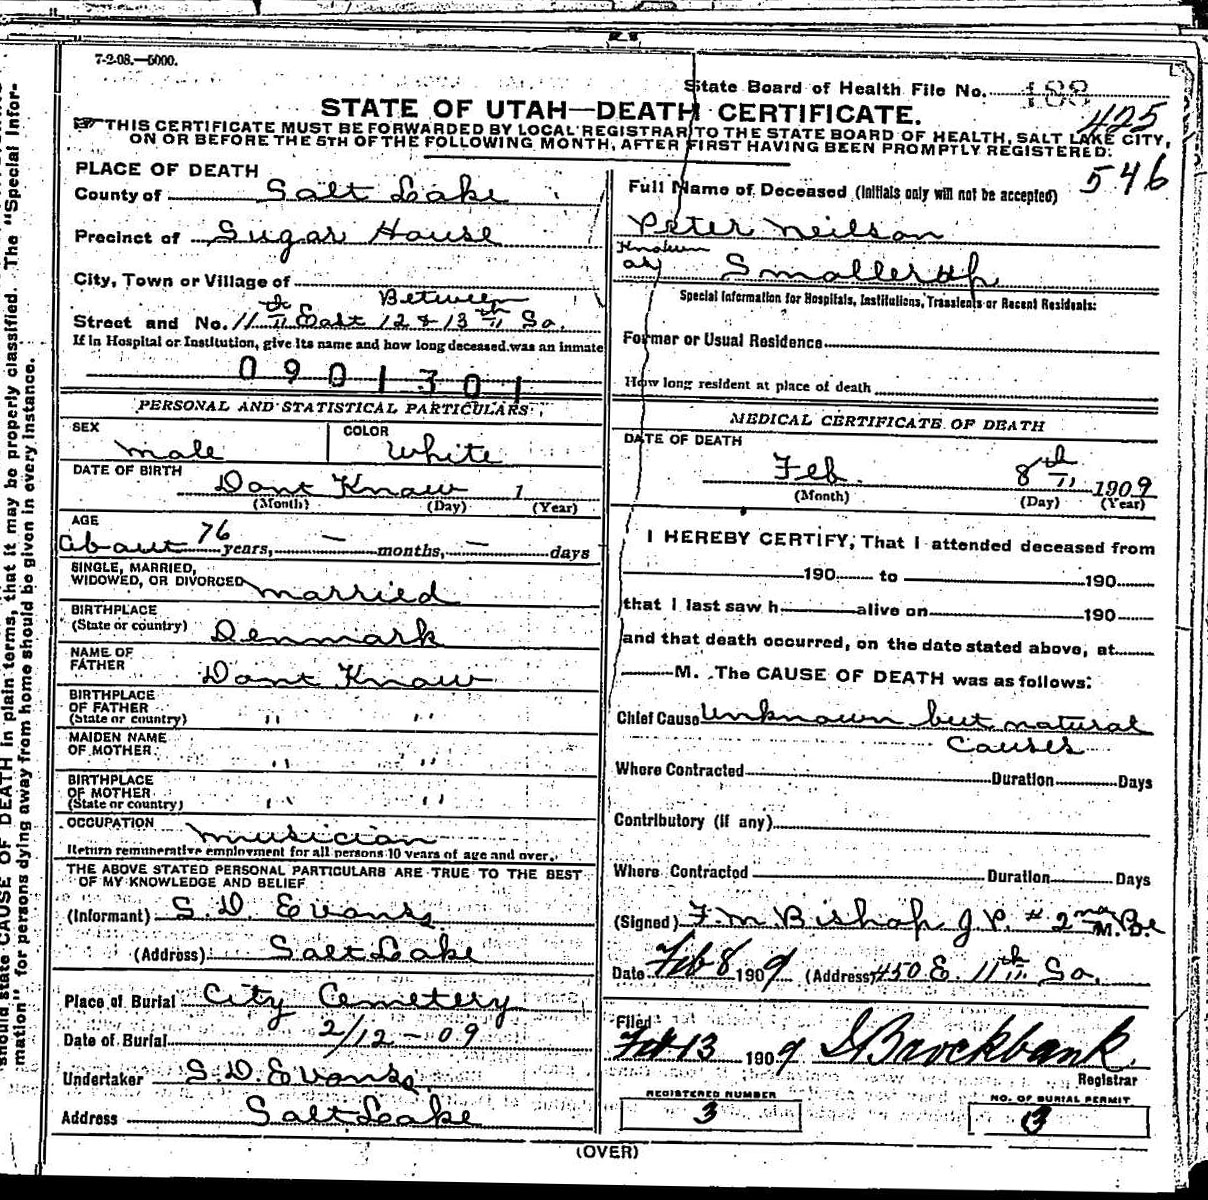 7-2-08.—5000.
State Board of Health File No. 188
STATE OF UTAH—DEATH CERTIFICATE.
425
THIS CERTIFICATE MUST BE FORWARDED BY LOCAL REGISTRAR TO THE STATE BOARD OF HEALTH, SALT LAKE CITY,
ON OR BEFORE THE 5TH OF THE FOLLOWING MONTH, AFTER FIRST HAVING BEEN PROMPTLY REGISTERED.
546
PLACE OF DEATH
County of Salt Lake
Precinct of Sugar House
City, Town or Village of
Between
Street and No. 11th East 12 & 13th So.
If in Hospital or Institution, give its name and how long deceased was an inmate
0901301
PERSONAL AND STATISTICAL PARTICULARS
SEX
male
COLOR
White
DATE OF BIRTH
Dont Know 1
(Month) (Day) (Year)
AGE
About 76 years, — months, — days
SINGLE, MARRIED,
WIDOWED, OR DIVORCED married
BIRTHPLACE
(State or country) Denmark
NAME OF
FATHER
Dont Know
BIRTHPLACE
OF FATHER
(State or country) " "
MAIDEN NAME
OF MOTHER " "
BIRTHPLACE
OF MOTHER
(State or country) " "
OCCUPATION musician
Return remunerative employment for all persons 10 years of age and over.
THE ABOVE STATED PERSONAL PARTICULARS ARE TRUE TO THE BEST
OF MY KNOWLEDGE AND BELIEF
(Informant) S. D. Evans
(Address) Salt Lake
Place of Burial City Cemetery
Date of Burial 2/12-09
Undertaker S. D. Evans
Address Salt Lake
Full Name of Deceased (Initials only will not be accepted)
Peter Neilson
Known
as Smallerup
Special Information for Hospitals, Institutions, Transients or Recent Residents:
Former or Usual Residence
How long resident at place of death
MEDICAL CERTIFICATE OF DEATH
DATE OF DEATH
Feb. 8th 1909
(Month) (Day) (Year)
I HEREBY CERTIFY, That I attended deceased from
190 to 190
that I last saw h alive on 190
and that death occurred, on the date stated above, at
M. The CAUSE OF DEATH was as follows:
Chief Cause Unknown but natural
Causes
Where Contracted Duration Days
Contributory (if any)
Where Contracted Duration Days
(Signed) F. M. Bishop J. P. # 2nd M. D.
Date Feb 8 1909 (Address) 450 E. 11th So.
Filed
Feb 13 1909 Brockbank
Registrar
REGISTERED NUMBER
3
NO. OF BURIAL PERMIT
3
(OVER)
should state CAUSE OF DEATH in plain terms, that it may be properly classified. The "Special Infor-
mation" for persons dying away from home should be given in every instance.